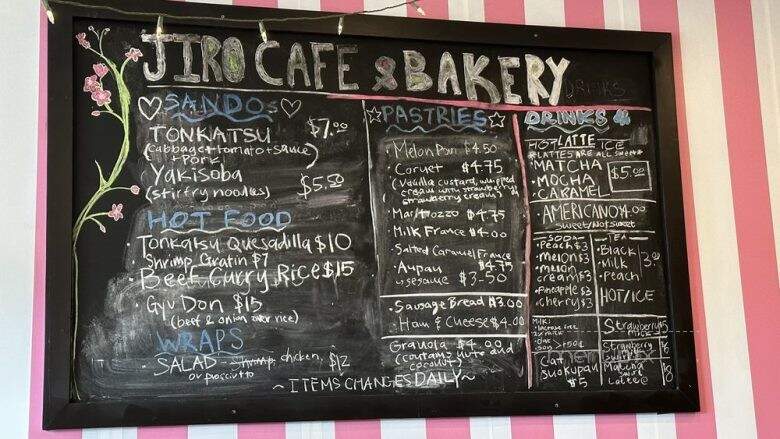 JIRO CAFE & BAKERY
DRINKS
SANDOS
TONKATSU $7.00
(cabbage + tomato + sauce
+ Pork)
Yakisoba $5.50
(stirfry noodles)
HOT FOOD
· Tonkatsu Quesadilla $10
Shrimp Gratin $7
· Beef Curry Rice $15
· Gyu Don $15
(beef & onion over rice)
WRAPS
· SALAD - Shrimp, chicken, $12
or prosciutto
~ITEMS CHANGES DAILY~
☆PASTRIES☆
· Melon Pan $4.50
· Cornet $4.75
(Vanilla custard, whipped
cream with strawberry,
strawberry cream)
· Maritozzo $4.75
· Milk France $4.00
· Salted Caramel France
$4.75
· Anpan
↳ sesame $3.50
· Sausage Bread $3.00
· Ham & Cheese $4.00
Granola $4.00
(contains nuts and
coconut)
DRINKS
HOT LATTE ICE
*LATTES ARE ALL sweet*
· MATCHA
· MOCHA $5.00
· CARAMEL
· AMERICANO 4.00
Sweet/Not sweet
SODA
· Peach $3
· melon $3
· melon
cream $3
· Pineapple $3
· cherry $3
TEA
· Black
· Milk 3.00
· Peach
HOT/ICE
Milk:
· lactose free
· oat
· soy
Strawberry 5
Milk
Strawberry 6
Cat
Shokupan
$5
Matcha 8
Latte